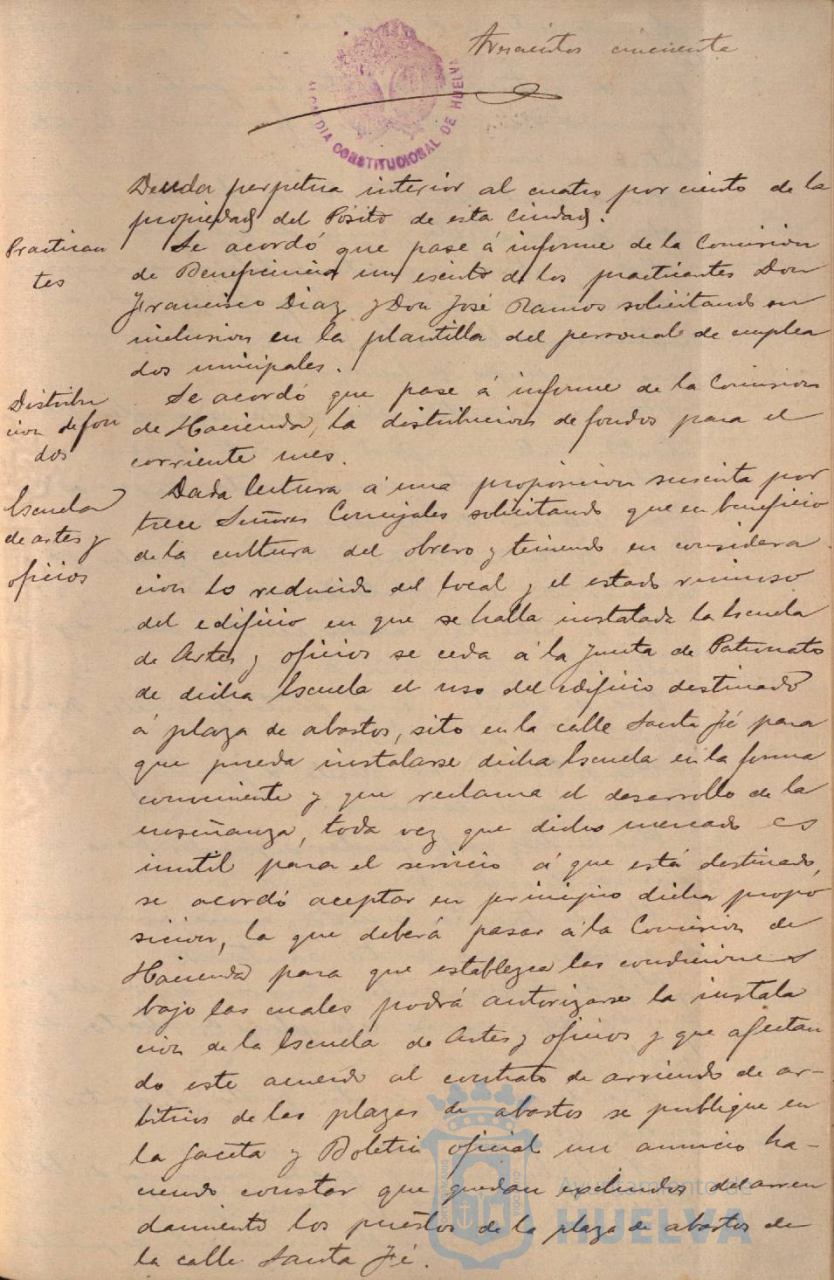 Trescientos cincuenta
ALCALDIA CONSTITUCIONAL DE HUELVA
Deuda perpetua interior al cuatro por ciento de la
propiedad del Pósito de esta Ciudad.
Practican
tes
Se acordó que pase á informe de la Comision
de Beneficencia un escrito de los practicantes Don
Francisco Diaz y Don José Ramos solicitando su
inclusion en la plantilla del personal de emplea
dos municipales.
Distribu
cion de fon
dos
Se acordó que pase á informe de la Comision
de Hacienda, la distribucion de fondos para el
corriente mes.
Escuela
de artes y
oficios
Dada lectura á una proposicion suscrita por
trece Señores Concejales solicitando que en beneficio
de la cultura del obrero y teniendo en considera
cion lo reducido del local y el estado ruinoso
del edificio en que se halla instalada la Escuela
de Artes y oficios se ceda á la Junta de Patronato
de dicha Escuela el uso del edificio destinado
á plaza de abastos, sito en la calle Santa Fé para
que pueda instalarse dicha Escuela en la forma
conveniente y que reclama el desarrollo de la
enseñanza, toda vez que dicho mercado es
inutil para el servicio á que está destinado,
se acordó aceptar en principio dicha propo
sicion, la que deberá pasar á la Comision de
Hacienda para que establezca las condiciones
bajo las cuales podrá autorizarse la instala
cion de la Escuela de Artes y oficios y que afectan
do este acuerdo al contrato de arriendo de ar-
bitrios de las plazas de abastos se publique en
la Gaceta y Boletin oficial un anuncio ha-
ciendo constar que quedan excluidos del arren
damiento los puestos de la plaza de abastos de
la calle Santa Fé.
Ayuntamiento de
HUELVA